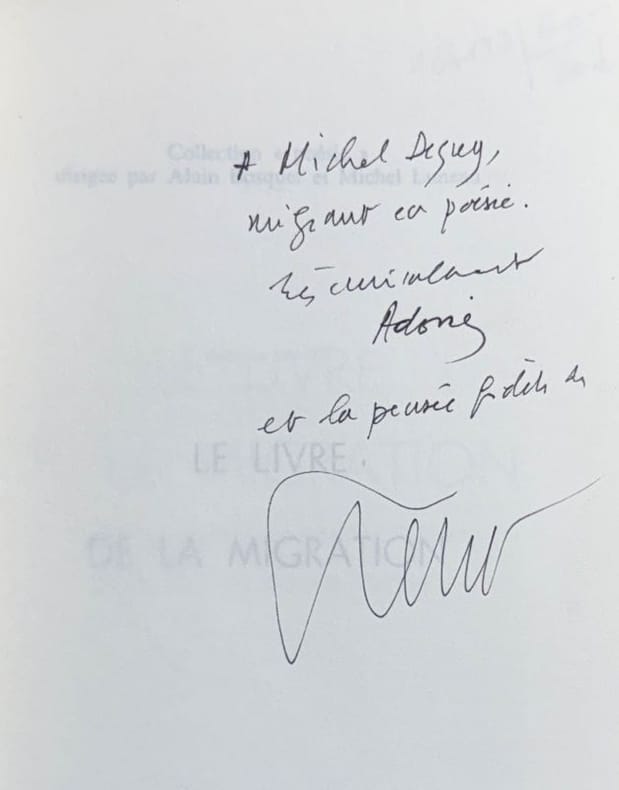 A Michel Deguy,
migrant en poésie.
très amicalement
Adonis
et la pensée fidèle de
Collection
dirigée par Alain Bosquet et Michel
LE LIVRE
DE LA MIGRATION